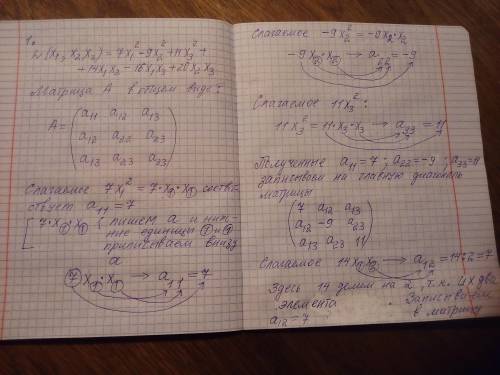 1.
L(x₁, x₂, x₃) = 7x₁² - 9x₂² + 11x₃² +
+ 14x₁x₂ - 16x₁x₃ + 20x₂x₃
Матрица А в общем виде:
A = (a₁₁ a₁₂ a₁₃
a₁₂ a₂₂ a₂₃
a₁₃ a₂₃ a₃₃)
Слагаемое 7x₁² = 7·x₁·x₁ соответ-
ствует a₁₁ = 7
[7·x①·x① (пишем a и ниж-
ние единицы ① и ①
приписываем внизу
a
⑦x①·x① → a₁₁ = 7
Слагаемое -9x₂² = -9x₂·x₂
-9x②·x② → a₂₂ = -9
Слагаемое 11x₃²:
11x₃² = 11·x₃·x₃ → a₃₃ = 11
Полученные a₁₁ = 7; a₂₂ = -9; a₃₃ = 11
записываем на главную диагональ
матрицы
(7 a₁₂ a₁₃
a₁₂ -9 a₂₃
a₁₃ a₂₃ 11)
Слагаемое 14x①x② → a₁₂ = 14:2 = 7
Здесь 14 делим на 2, т.к. их два
элемента. Записываем
a₁₂ = 7 в матрицу